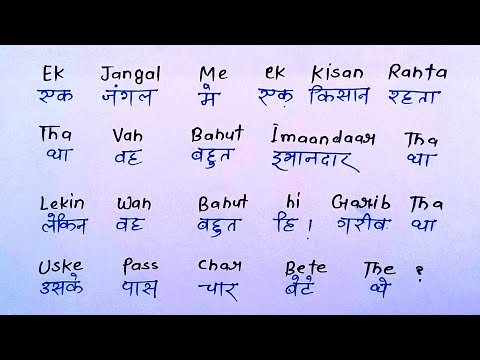 Ek Jangal Me ek Kisan Rahta
एक जंगल मे एक किसान रहता
Tha Vah Bahut Imaandaar Tha
था वह बहुत इमानदार था
Lekin Wah Bahut hi Garib Tha
लेकिन वह बहुत हि । गरीब था
Uske Pass Char Bete The ?
उसके पास चार बेटे थे